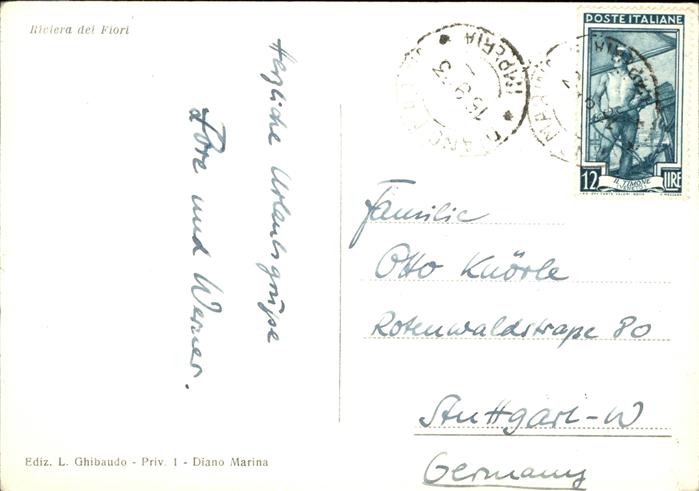 Riviera dei Fiori
Herzliche Urlaubsgrüße
Lore und Werner.
Ediz. L. Ghibaudo - Priv. 1 - Diano Marina
IMPERIA
POSTE ITALIANE
12 LIRE
IL TIMONE
Familie
Otto Knörle
Rotenwaldstraße 80
Stuttgart-W
Germany